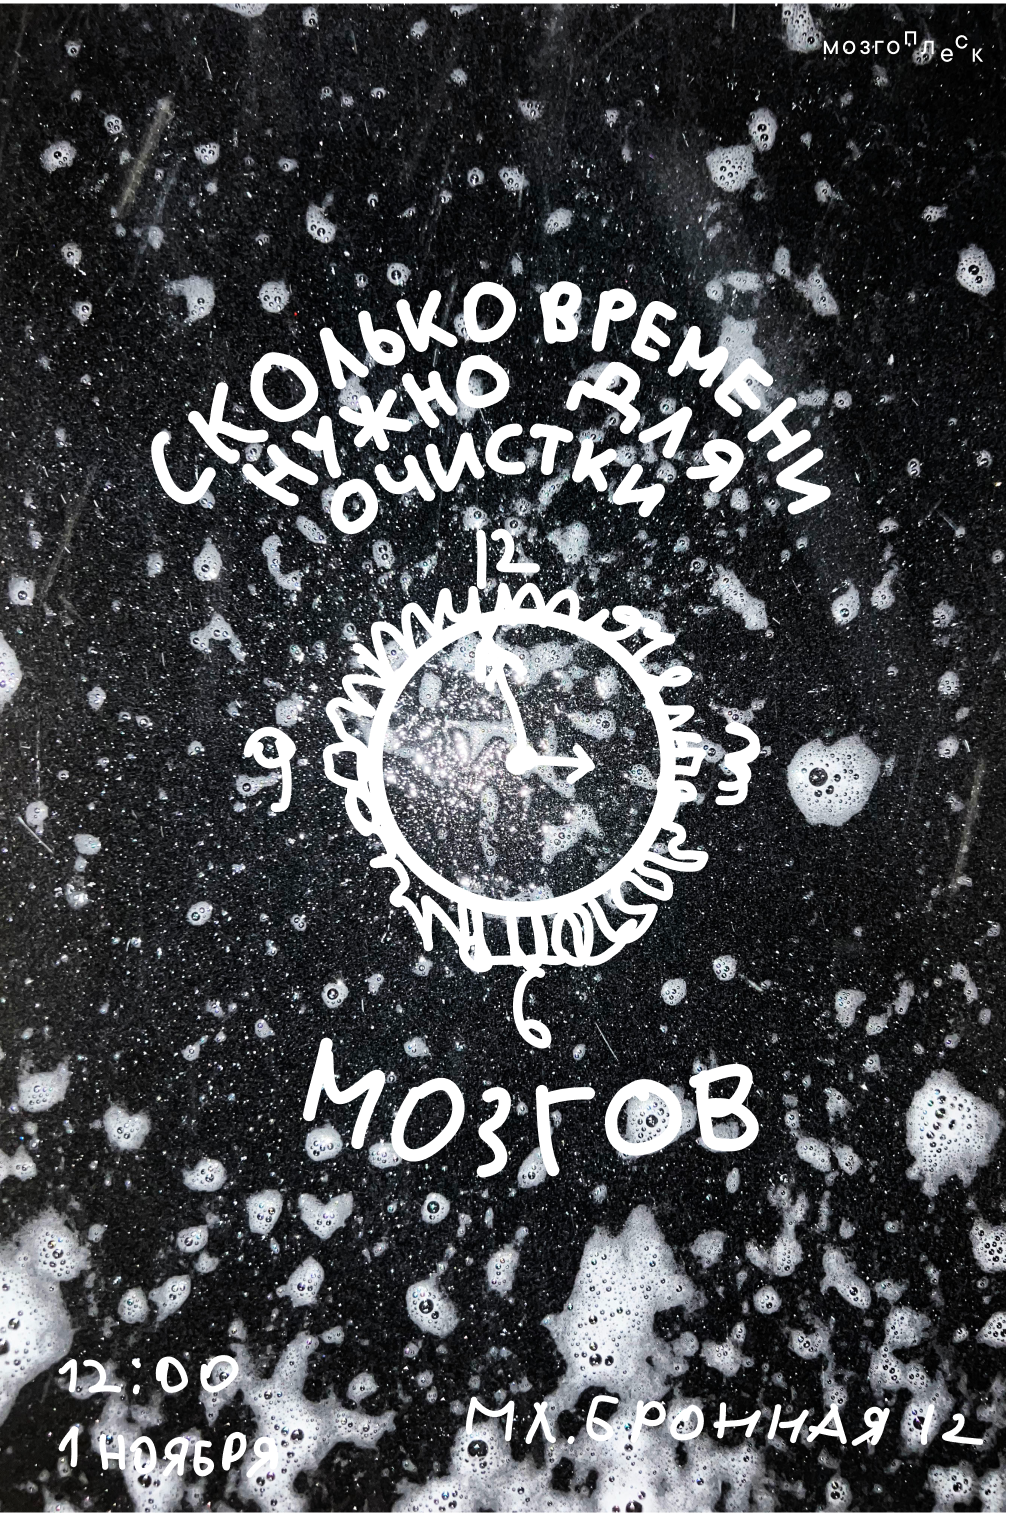 мозгоплеск
СКОЛЬКО ВРЕМЕНИ
НУЖНО ДЛЯ
ОЧИСТКИ
12
9
3
6
МОЗГОВ
12:00
1 НОЯБРЯ
МХ. БРОННАЯ 12